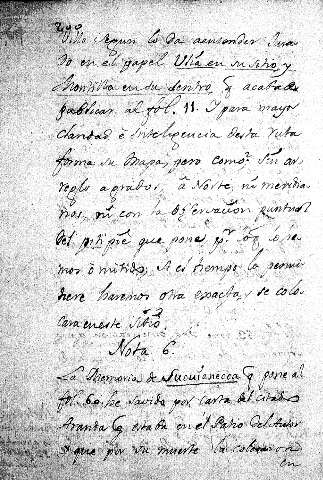 Ulla segun lo da aentender Jura
do en el papel Ulia en su sitio y
Montilla en su Centro q̃ acaba de
publicar al fol. 11. Y para mayor
claridad è Inteligencia desta ruta
forma su Mapa, pero como Sin ar
reglo agrabos, à Norte, ni meridia
nos, ni con la Observacion puntual
del pitipie que pone, p.r
mos omitido; Si el tiempo lo permi
tiere haremos otra exacta, y se colo
cara eneste Sitio.
Nota 6.
La Memoria de Sucujanecca q̃ pone al
fol. 60, he savido por Carta del Citado
Aranda q̃ estaba en el Patio del Autor
y que por su muerte la colocaron
en